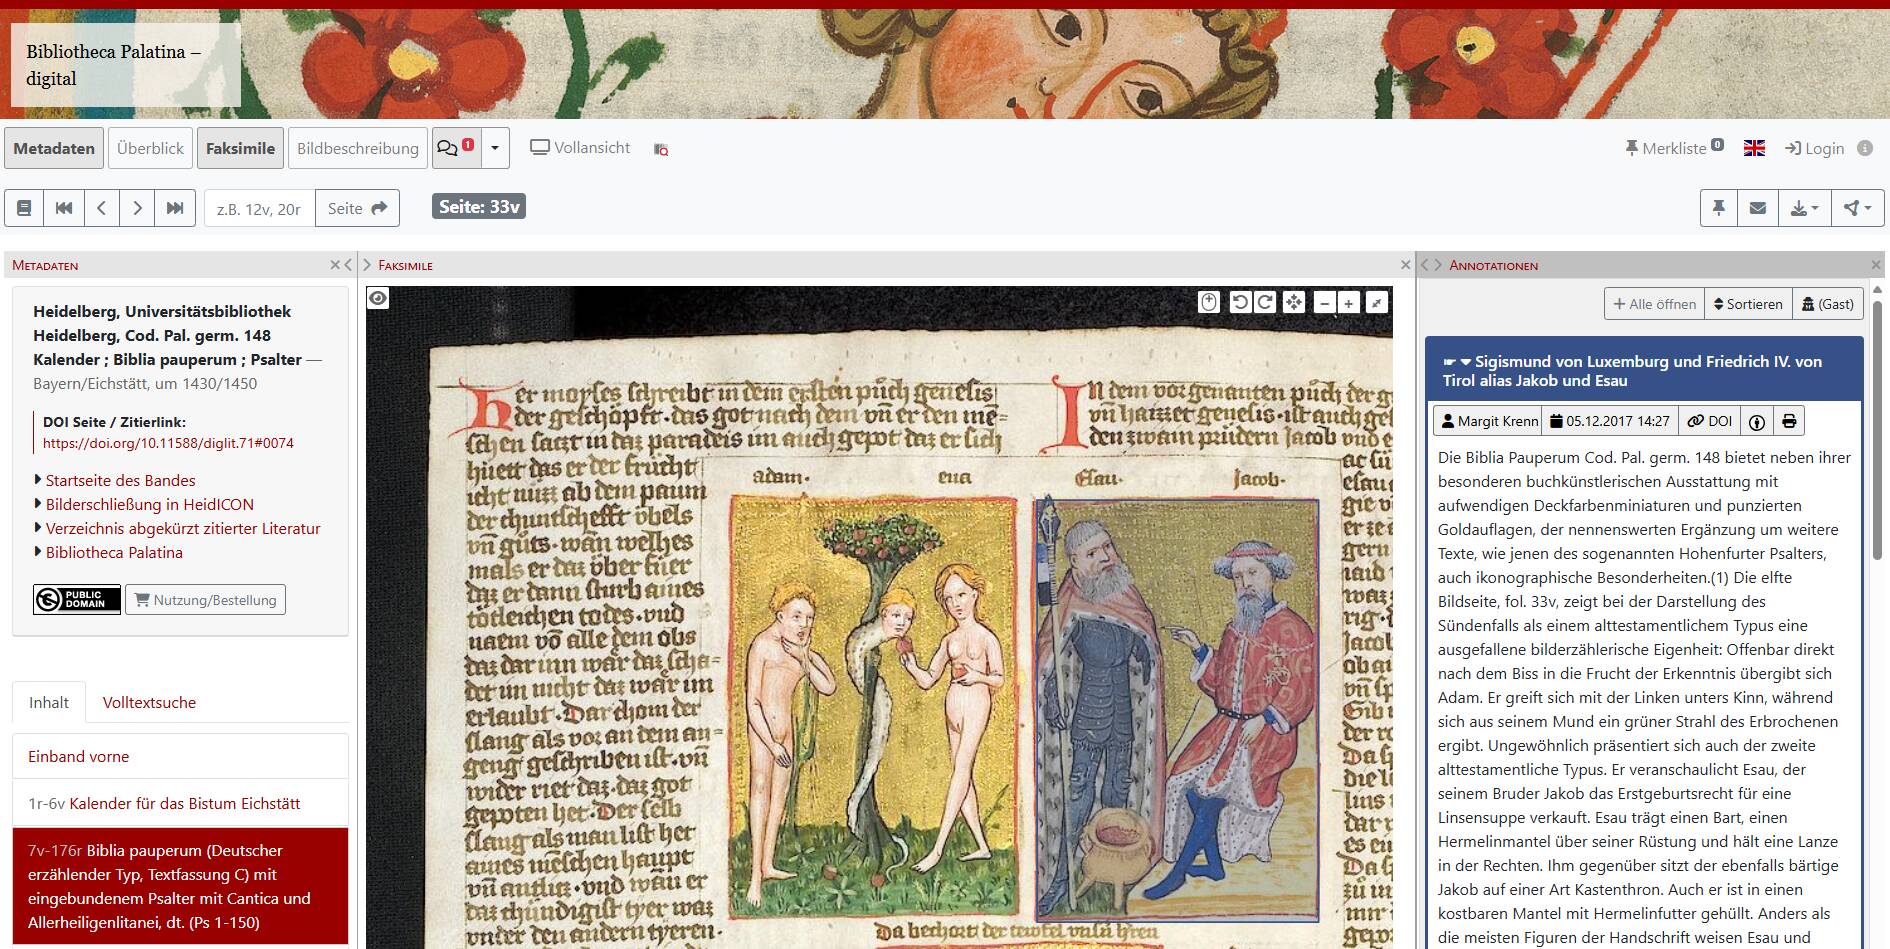 Bibliotheca Palatina –
digital
Metadaten
Überblick
Faksimile
Bildbeschreibung
1
Vollansicht
Merkliste 0
Login
z.B. 12v, 20r
Seite
Seite: 33v
Metadaten
Heidelberg, Universitätsbibliothek
Heidelberg, Cod. Pal. germ. 148
Kalender ; Biblia pauperum ; Psalter —
Bayern/Eichstätt, um 1430/1450
DOI Seite / Zitierlink:
https://doi.org/10.11588/diglit.71#0074
Startseite des Bandes
Bilderschließung in HeidICON
Verzeichnis abgekürzt zitierter Literatur
Bibliotheca Palatina
PUBLIC
DOMAIN
Nutzung/Bestellung
Inhalt
Volltextsuche
Einband vorne
1r-6v Kalender für das Bistum Eichstätt
7v-176r Biblia pauperum (Deutscher
erzählender Typ, Textfassung C) mit
eingebundenem Psalter mit Cantica und
Allerheiligenlitanei, dt. (Ps 1-150)
Faksimile
er moyses schreibt in dem ersten püch genesis
der geschöpft · das got nach dem vn̄ er den me=
schen saczt in daz paradeis im auch gepot daz er sich
hüett das er der frücht
icht nüzz ab dem paum
der chuntschefft vbels
vn̄ güts · wan welhes
mals er daz vber füer
daz er dann sturb aines
tötleichen todes · vnd
naem vō alle dem obs
daz dar inn wär daz scha=
det im nicht daz wär im
erlaubt · Dar chom der
slang als vor an dem an=
geng geschriben ist · vn̄
wider riet daz · daz got
gepoten het · Der selb
slang als man list het
aines menschen haupt
vn̄ antlütz · vnd wan er
daz chündigist tyer waz
vnder den andern tyeren ·
In dem vorgenanten püch der g
vn̄ haizzet genesis · ist auch ge
den zwain prüdern Jacob vnd e
adam ·
eua
Esau ·
Jacob ·
Annotationen
Alle öffnen
Sortieren
(Gast)
Sigismund von Luxemburg und Friedrich IV. von
Tirol alias Jakob und Esau
Margit Krenn
05.12.2017 14:27
DOI
Die Biblia Pauperum Cod. Pal. germ. 148 bietet neben ihrer
besonderen buchkünstlerischen Ausstattung mit
aufwendigen Deckfarbenminiaturen und punzierten
Goldauflagen, der nennenswerten Ergänzung um weitere
Texte, wie jenen des sogenannten Hohenfurter Psalters,
auch ikonographische Besonderheiten.(1) Die elfte
Bildseite, fol. 33v, zeigt bei der Darstellung des
Sündenfalls als einem alttestamentlichem Typus eine
ausgefallene bilderzählerische Eigenheit: Offenbar direkt
nach dem Biss in die Frucht der Erkenntnis übergibt sich
Adam. Er greift sich mit der Linken unters Kinn, während
sich aus seinem Mund ein grüner Strahl des Erbrochenen
ergibt. Ungewöhnlich präsentiert sich auch der zweite
alttestamentliche Typus. Er veranschaulicht Esau, der
seinem Bruder Jakob das Erstgeburtsrecht für eine
Linsensuppe verkauft. Esau trägt einen Bart, einen
Hermelinmantel über seiner Rüstung und hält eine Lanze
in der Rechten. Ihm gegenüber sitzt der ebenfalls bärtige
Jakob auf einer Art Kastenthron. Auch er ist in einen
kostbaren Mantel mit Hermelinfutter gehüllt. Anders als
die meisten Figuren der Handschrift weisen Esau und